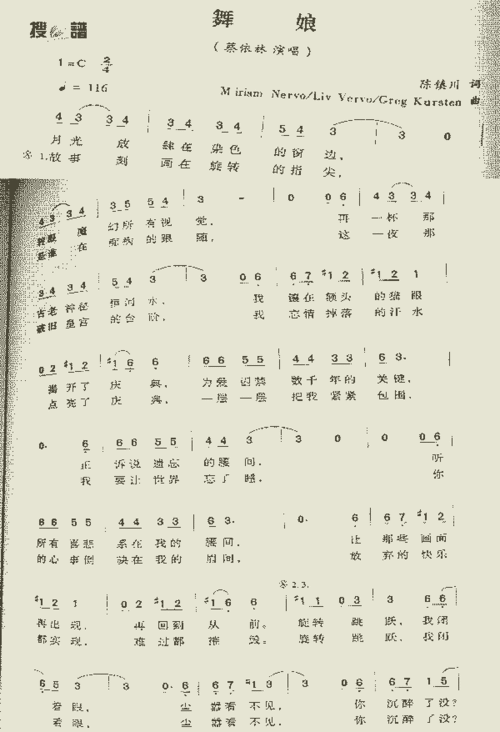 搜 la 谱
舞 娘
(蔡依林 演唱)
1=C 2/4
♩=116
陈镇川 词
Miriam Nervo/Liv Vervo/Greg Kursten 曲
4 3 3 4 3 4 3 4 5 4 3 3 0
月光 放 肆在 染色 的窗 边,
1.故事 到 画在 旋转 的指 尖,
4 3 3 4 3 5 5 4 3 - 0 0 6 4 3 3 4
转眼 魔 幻所 有视 觉, 再 一杯 那
在 的 跟 随, 这 一夜 那
4 3 3 4 3 4 5 4 3 3 0 6 6 7 #1 2 #1 2 1
古老 神秘 恒河 水, 我 镶在 额头 的猫 眼
破旧 皇宫 的台 阶, 我 忘情 掉落 的汗 水
0 2 #1 2 #1 6 6 6 6 5 5 4 4 3 3 6 3.
揭 开了 庆 典, 为爱 囚禁 数千 年的 关键,
点 亮了 庆 典, 一层 一层 把我 紧紧 包围,
0. 6 6 6 5 5 4 4 3 3 0 0 0 6
正 诉说 遗忘 的腰 间, 听
我 要让 世界 忘了 睡, 你
6 6 5 5 4 4 3 3 6 3. 0. 6 6 7 #1 2
所有 喜悲 系在 我的 腰间, 让 那些 画面
的心 事倒 缺在 我的 眉间, 放 弃的 快乐
#1 2 1 0 2 #1 2 #1 6 6 2.3. #1 1 0 3 3 6 6
再出 现, 再 回到 从 前。 旋转 跳 跃, 我闭
都实 现, 难 过都 摧 毁。 旋转 跳 跃, 我闭
6 5 3 3 0. 6 6 7 #1 3 3 0 6 6 7 1 5
着眼, 尘 嚣看 不见, 你 沉醉 了没?
着眼, 尘 嚣看 不见, 你 沉醉 了没?